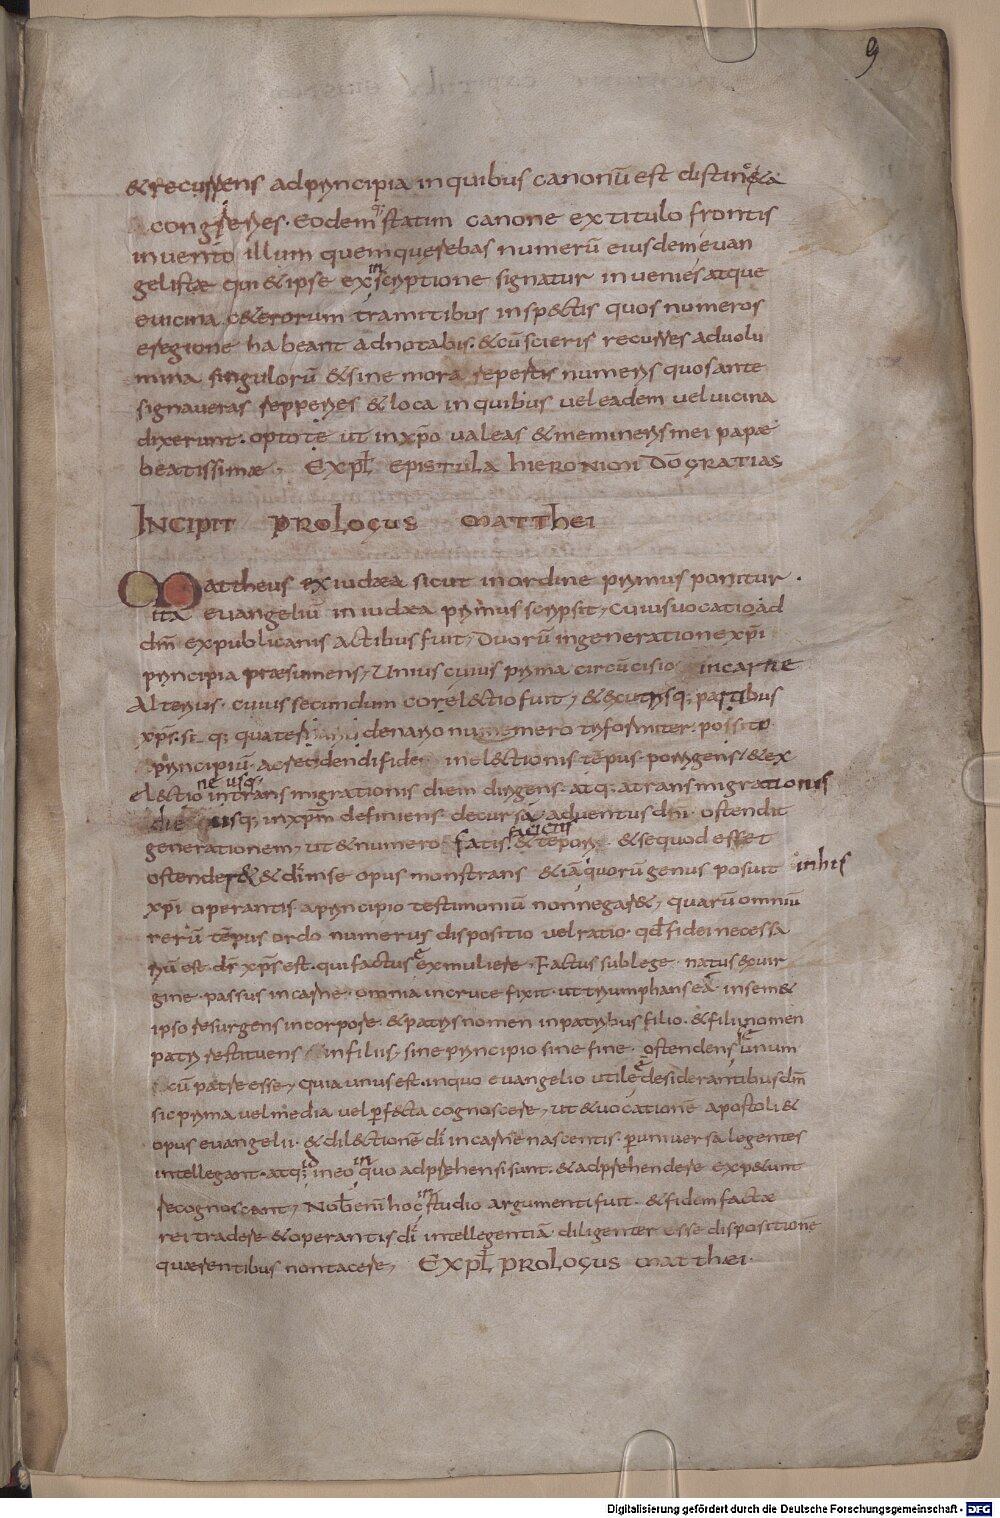 9
& recurrens ad principia in quibus canonū est distincta
congeries. Eodemq; statim canone ex titulo frontis
invento illum quem querebas numerū eiusdem evan
gelistæ qui & ipse ex inscriptione signatur invenies atque
e vicina c&erorum tramitibus insp&ctis quos numeros
e regione habeant adnotabis. & cū scieris recurres ad volu
mina singulorū & sine mora repertis numeris quos ante
signaveras repperies & loca in quibus vel eadem vel vicina
dixerunt. opto te ut in xp̄o valeas & memineris mei papæ
beatissimæ. Expl epistula hieronimi dō gratias
Incipit prologus matthei
Mattheus ex iudæa sicut in ordine primus ponitur.
ita evangeliū in iudæa primus scripsit, cuius vocatio ad
dm̄ ex publicanis actibus fuit, duorū in generatione xp̄i
principia præsumens, Unius cuius prima circūcisio in carne
Alterius. cuius secundum cor el&ctio fuit, & ex utrisq; patribus
xp̄s. sicq; quaterno denario numero triformiter posito
principiū. a credendi fide in el&ctionis tēpus porrigens, & ex
el&ctione usq; in transmigrationis diem dirigens. atq; a transmigrationis
die usq; in xp̄m definiens decursā adventus dn̄i ostendit
generationem, ut & numero satisfaciens & tēpori & se quod ess&
ostender& & dī in se opus monstrans & iā in his quorū genus posuit
xp̄i operantis a principio testimoniū non negar&, quarū omniū
rerū tēpus ordo numerus dispositio vel ratio. qd fidei necessa
riū est. ds̄ xp̄s est. qui factus ex muliere. Factus sub lege. natus ex vir
gine. passus in carne. omnia in cruce fixit. ut triumphans ea in sem&
ipso resurgens in corpore. & patris nomen in patribus filio. & filii nomen
patri restituens in filiis, sine principio sine fine. ostendens unum
se cū patre esse, quia unus est. in quo evangelio utile ē desiderantibus dm̄
sic prima vel media vel perf&cta cognoscere, ut & vocationē apostoli &
opus evangelii. & dil&ctionē dī in carne nascentis. p universa legentes
intellegant. atq; id in eo in quo adprehensi sunt. & adprehendere exp&unt
recognoscant, Nob enī hoc in studio argumenti fuit. & fidem factæ
rei tradere & operantis dī intellegentiā diligenter esse dispositionē
quærentibus non tacere, Expl prologus matthei.
Digitalisierung gefördert durch die Deutsche Forschungsgemeinschaft - DFG